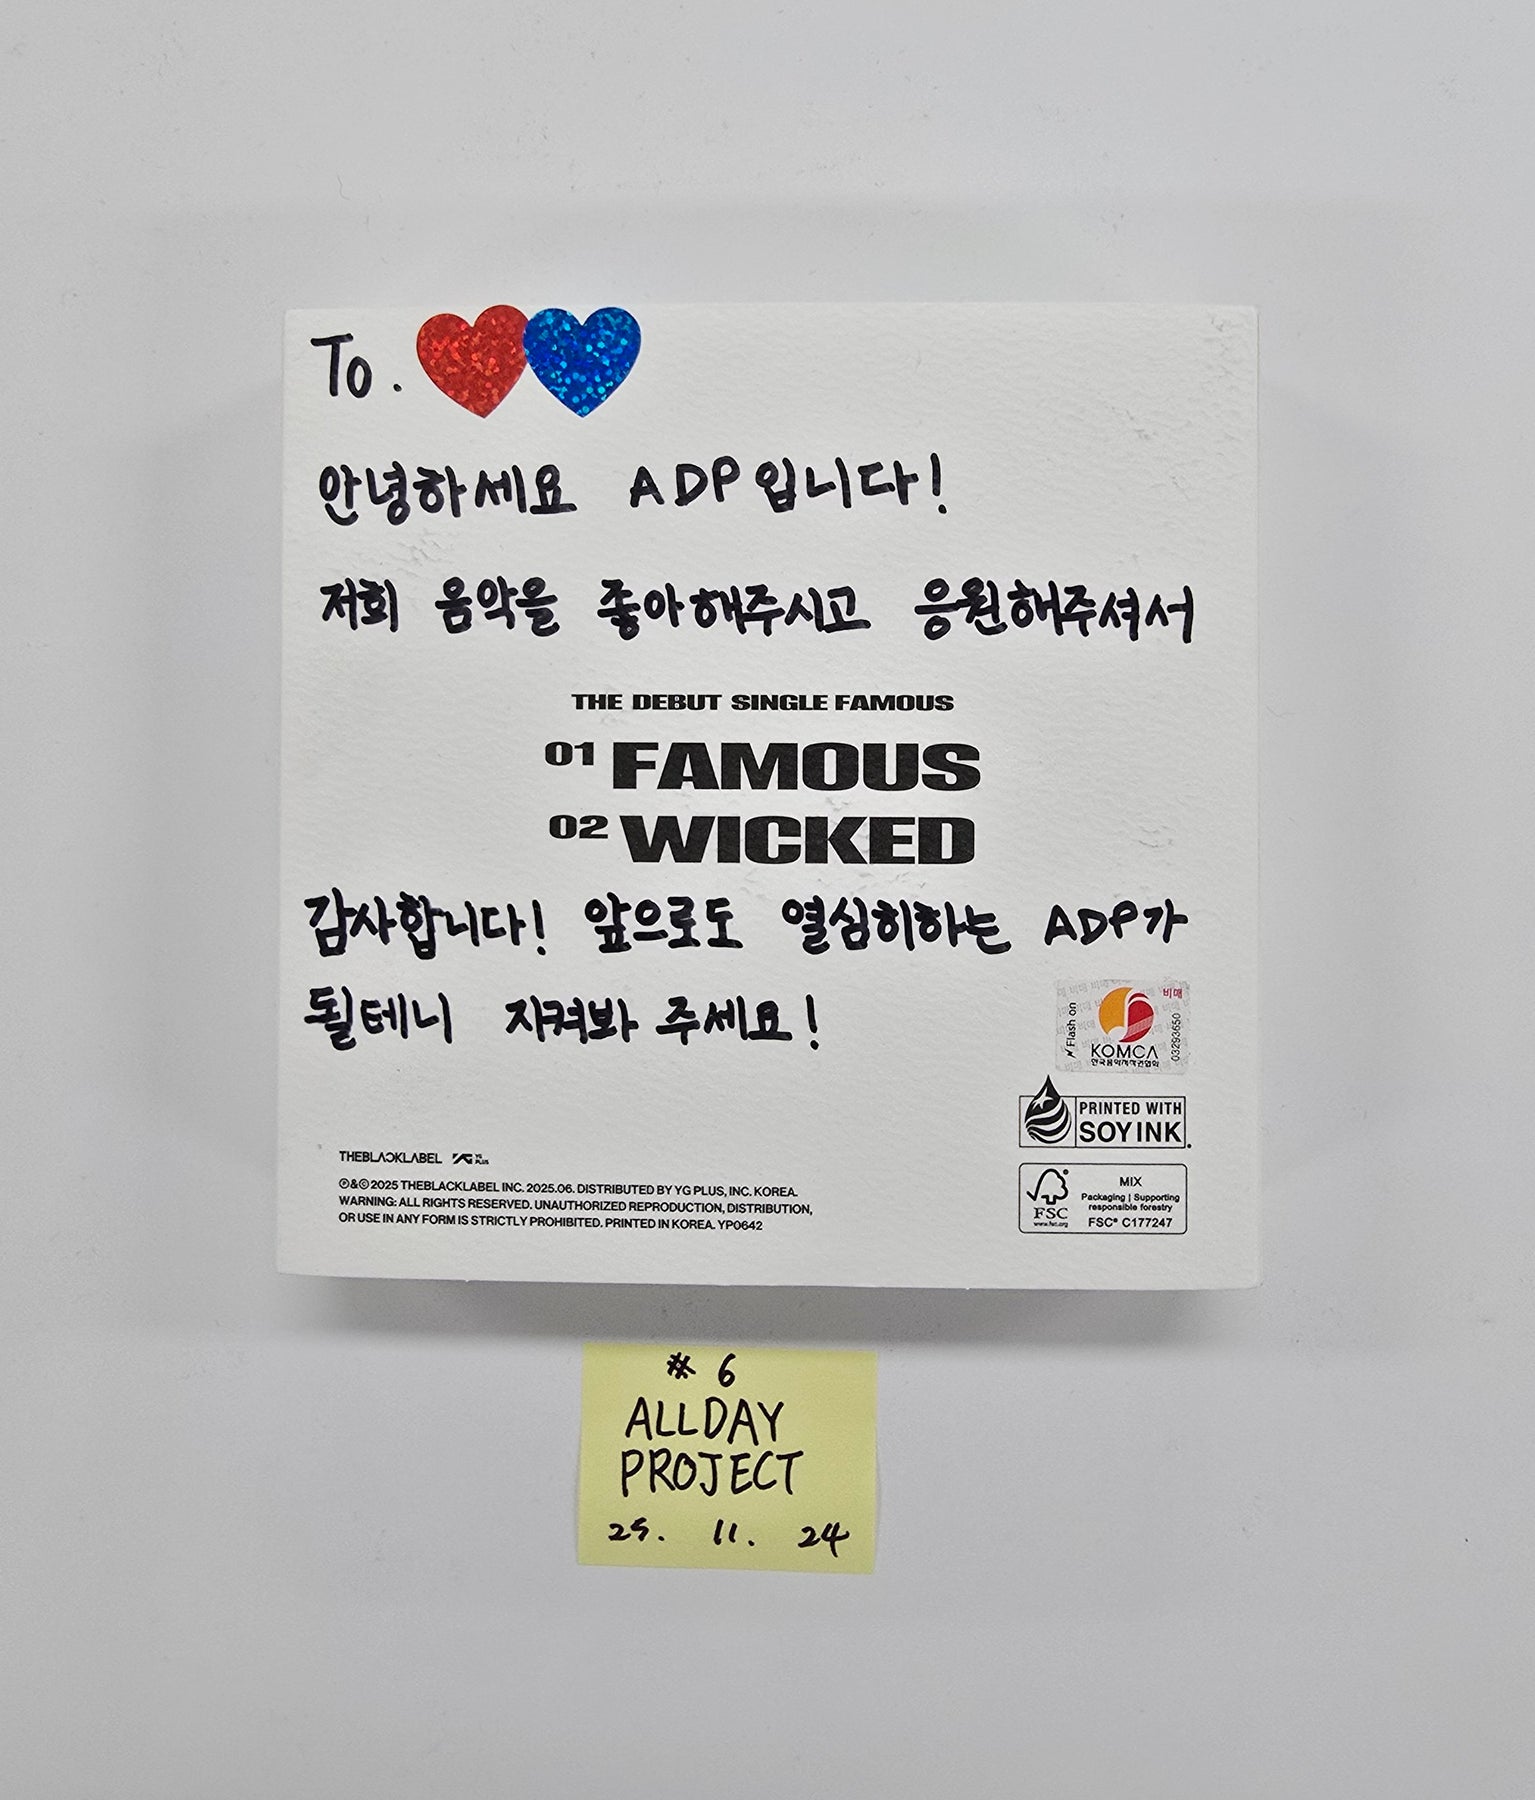 To.
안녕하세요 ADP입니다!
저희 음악을 좋아해주시고 응원해주셔서
THE DEBUT SINGLE FAMOUS
01 FAMOUS
02 WICKED
감사합니다! 앞으로도 열심히하는 ADP가
될테니 지켜봐 주세요!
비매
Flash on
KOMCA
한국음악저작권협회
03293650
PRINTED WITH
SOY INK
THEBLACKLABEL YG PLUS
℗&© 2025 THEBLACKLABEL INC. 2025.06. DISTRIBUTED BY YG PLUS, INC. KOREA.
WARNING: ALL RIGHTS RESERVED. UNAUTHORIZED REPRODUCTION, DISTRIBUTION,
OR USE IN ANY FORM IS STRICTLY PROHIBITED. PRINTED IN KOREA. YP0642
FSC
www.fsc.org
MIX
Packaging | Supporting
responsible forestry
FSC® C177247
# 6
ALLDAY
PROJECT
25. 11. 24